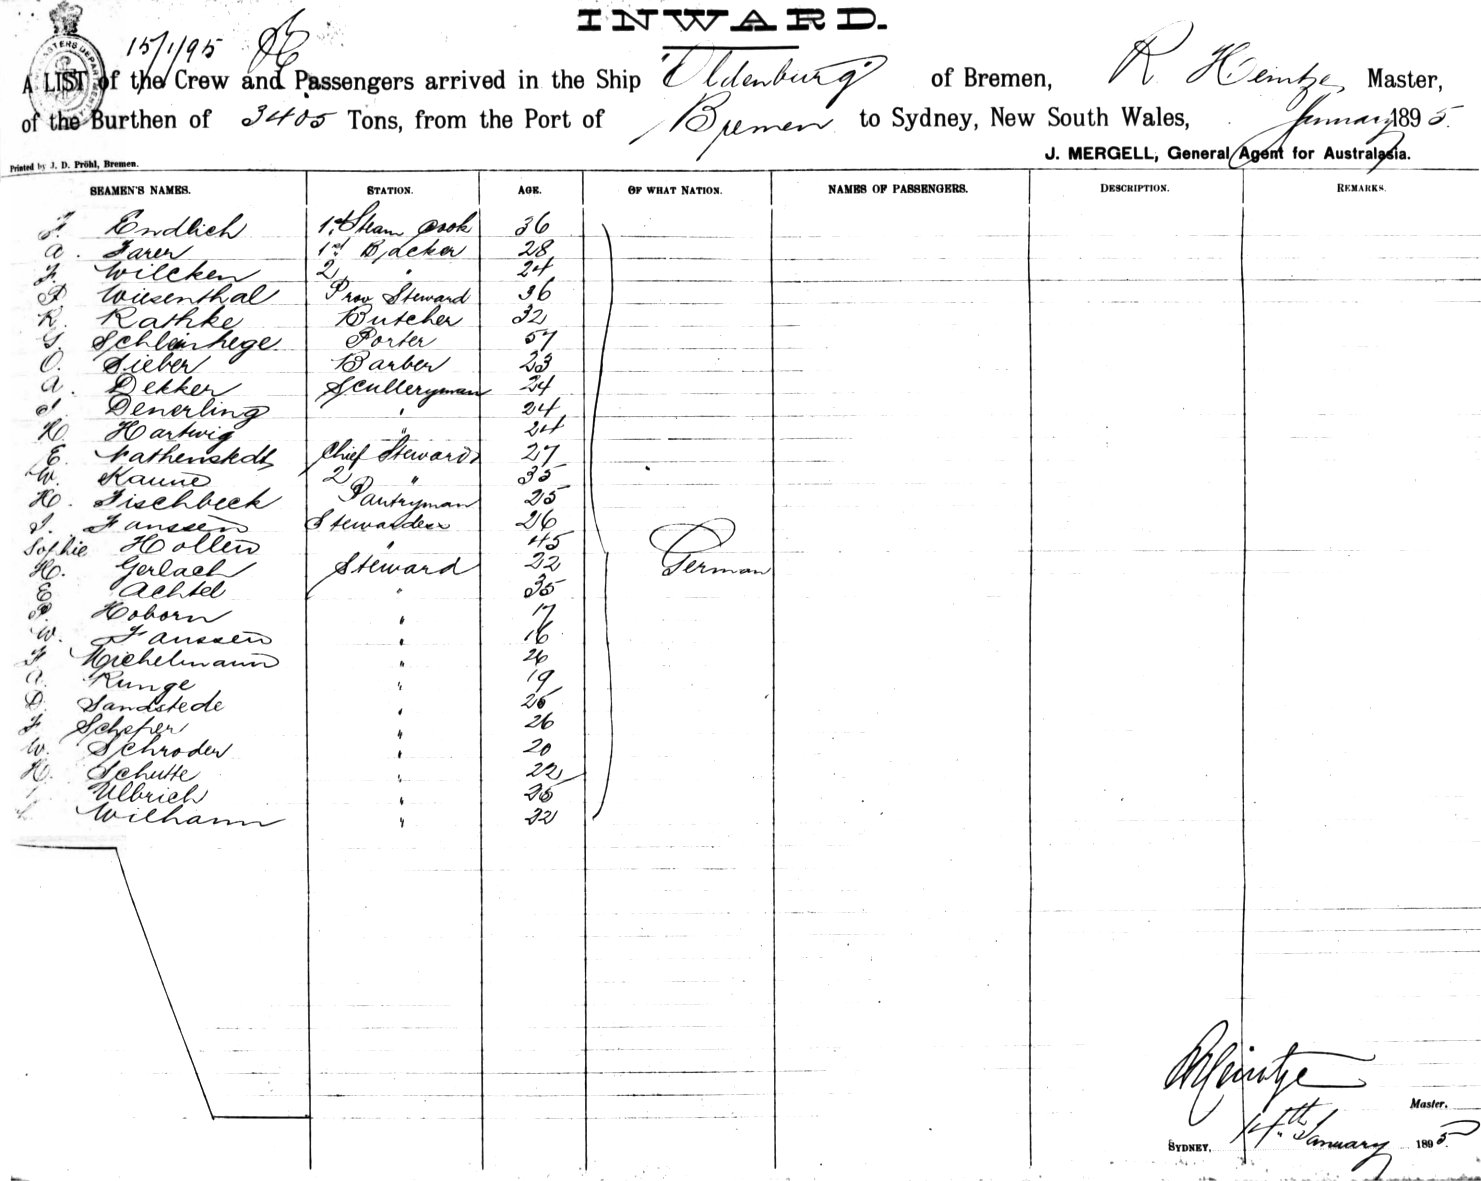 INWARD.
15/1/95
A LIST of the Crew and Passengers arrived in the Ship "Oldenburg" of Bremen, R Heintze Master,
of the Burthen of 3405 Tons, from the Port of Bremen to Sydney, New South Wales, January 1895.
J. MERGELL, General Agent for Australasia.
Printed by J. D. Pröhl, Bremen.
SEAMEN'S NAMES. STATION. AGE. OF WHAT NATION. NAMES OF PASSENGERS. DESCRIPTION. REMARKS.
Endlich 1st Steam Cook 36
A. Farer 1st Backer 28
F. Wilcken 2 " 24
P Wiesenthal Prov Steward 36
R. Rathke Butcher 32
G. Schleinhege Porter 57
O. Sieber Barber 23
A. Dekker Sculleryman 24
Denerling " 24
H. Hartwig " 24
E. Chief Steward 27
W. Kaune 2 " 35
H. Fischbeck Pantryman 25
J. Janssen Stewardess 26
Sophie Hollen " 45
H. Gerlach Steward 22 German
E Achtel " 35
P. Hoborn " 17
W. Janssen " 16
F Michelmann " 26
A. Runge " 19
D. Sandstede " 26
F Scheper " 26
W. Schroder " 20
H. Schutte " 22
Ulbrich " 25
Wilhann " 22
RHeintze
Master.
SYDNEY, 14th January 1895